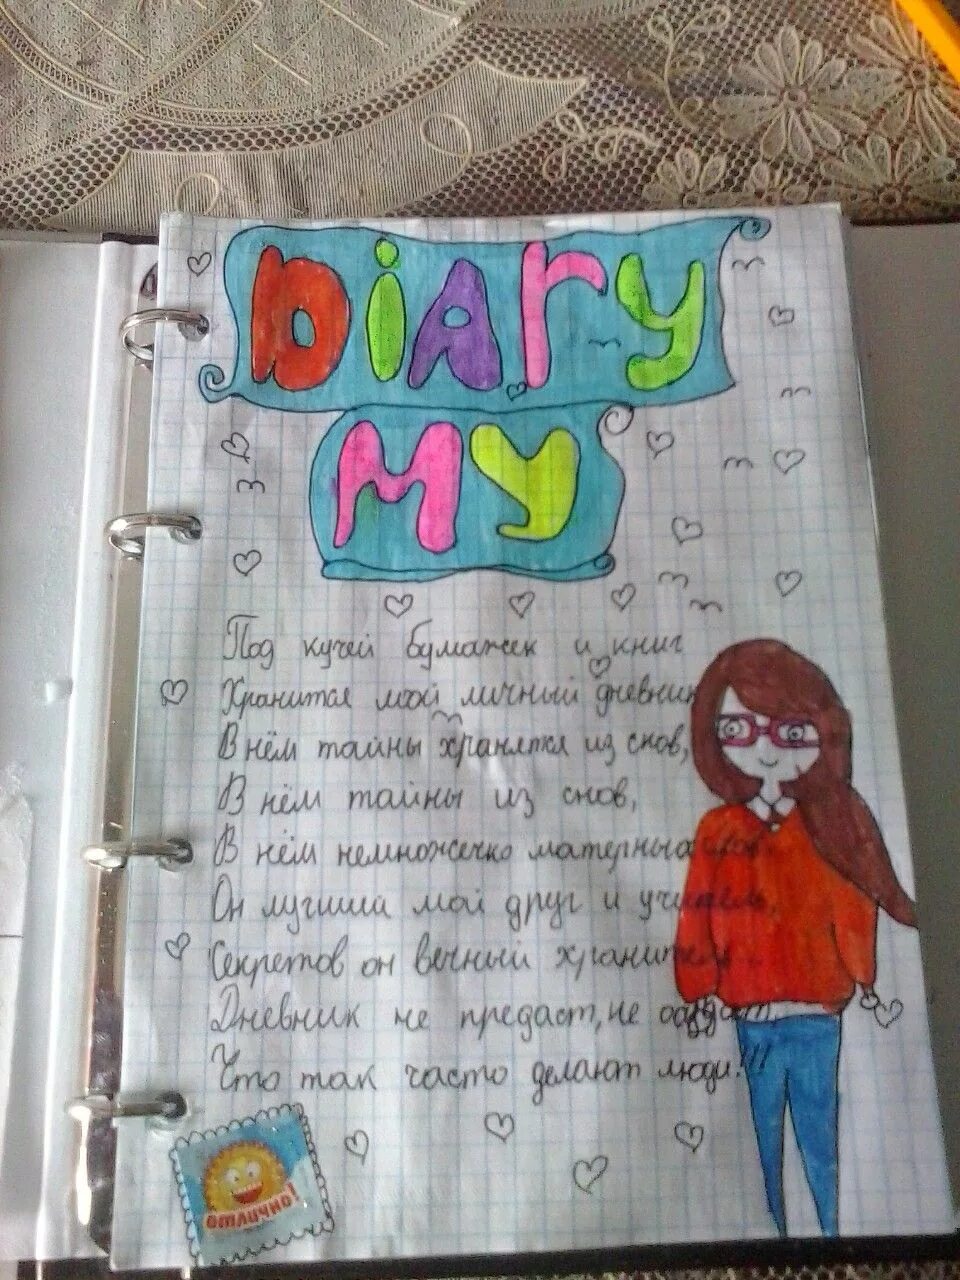 DiArY
MY
Под кучей бумажек и книг
Хранится мой личный дневник
В нём тайны хранятся из снов,
В нём тайны из снов,
В нём немножечко матерных слов.
Он лучша мой друг и учитель,
Секретов он вечный хранитель..
Дневник не предаст, не
Что так часто делают люди!!!
отлично!